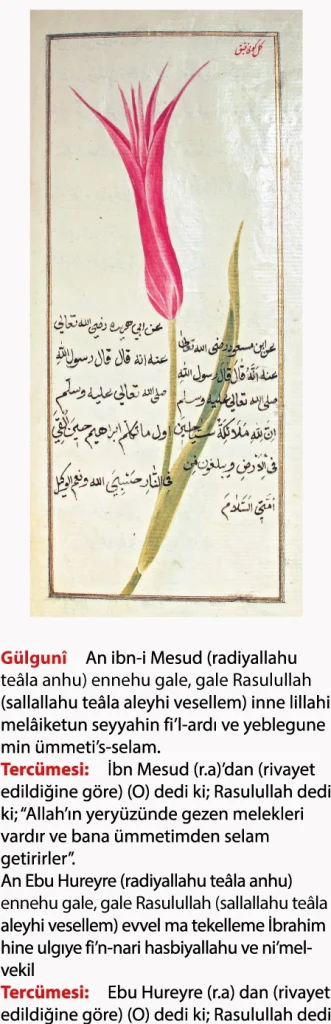 عن ابن مسعود رضى الله تعالى
عنه اَنَّهُ قَالَ قال رسول الله
صلى الله تعالى عليه وسلم
اِنَّ لِلّٰهِ مَلَائِكَةً سَيَّاحِينَ
فِى الْاَرْضِ وَيبلغون مِن
اُمَّتِىَ السَّلَامَ
عن ابى هريره رضى الله تعالى
عنه انه قال قال رسول الله
صلى الله تعالى عليه وسلم
اول ما تكلم ابراهيم حينَ اُلْقِىَ
فى النَّارِ حَسْبِىَ الله ونعم الوكيل
Gülgunî An ibn-i Mesud (radiyallahu
teâla anhu) ennehu gale, gale Rasulullah
(sallallahu teâla aleyhi vesellem) inne lillahi
melâiketun seyyahin fi’l-ardı ve yeblegune
min ümmeti’s-selam.
Tercümesi: İbn Mesud (r.a)’dan (rivayet
edildiğine göre) (O) dedi ki; Rasulullah dedi
ki; “Allah’ın yeryüzünde gezen melekleri
vardır ve bana ümmetimden selam
getirirler”.
An Ebu Hureyre (radiyallahu teâla anhu)
ennehu gale, gale Rasulullah (sallallahu teâla
aleyhi vesellem) evvel ma tekelleme İbrahim
hine ulgıye fi’n-nari hasbiyallahu ve ni’mel-
vekil
Tercümesi: Ebu Hureyre (r.a) dan (rivayet
edildiğine göre) (O) dedi ki; Rasulullah dedi